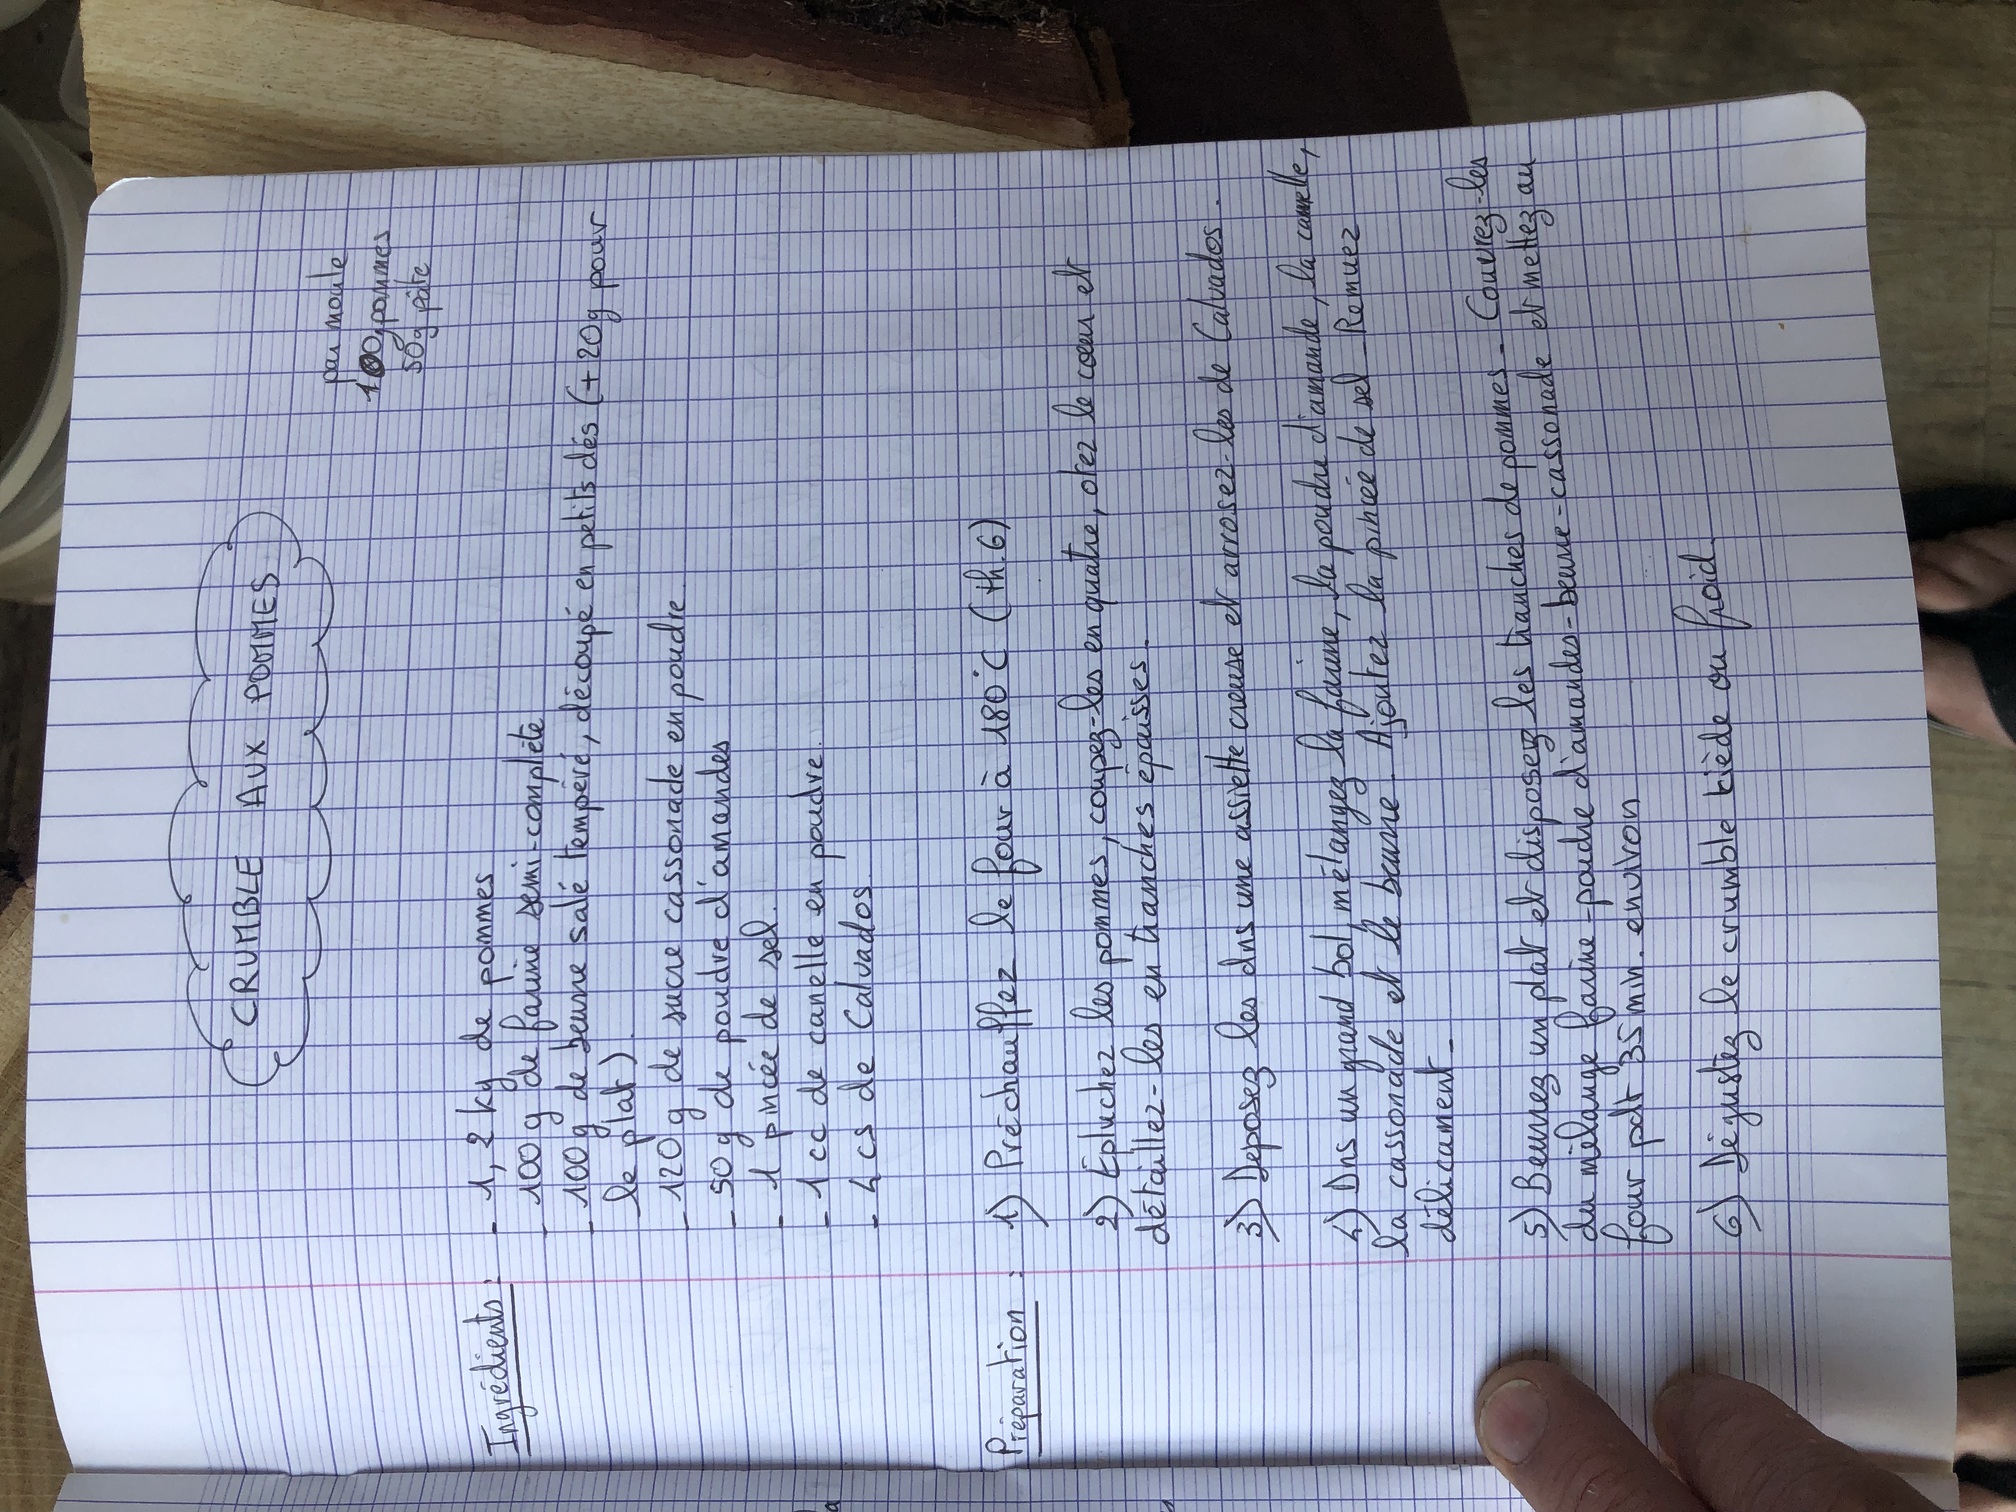 CRUMBLE AUX POMMES
par moule
100g pommes
50g pâte
Ingrédients :
- 1,2 kg de pommes
- 100 g de farine semi-complète
- 100 g de beurre salé tempéré, découpé en petits dés (+ 20g pour
le plat).
- 120 g de sucre cassonade en poudre
- 50 g de poudre d'amandes
- 1 pincée de sel.
- 1 cc de canelle en poudre.
- 4 cs de Calvados.
Préparation : 1) Préchauffez le four à 180°C (th 6)
2) Epluchez les pommes, coupez-les en quatre, otez le coeur et
détaillez-les en tranches épaisses.
3) Deposez les dns une assiette creuse et arrosez-les de Calvados.
4) Dns un grand bol, mélangez la farine, la poudre d'amande, la canelle,
la cassonade et le beurre. Ajoutez la pincée de sel - Remuez
délicament -
5) Beurrez un plat et disposez les tranches de pommes - Couvrez-les
du mélange farine-poudre d'amandes-beurre-cassonade et mettez au
four pdt 35 min. environ
6) Dégustez le crumble tiède ou froid.